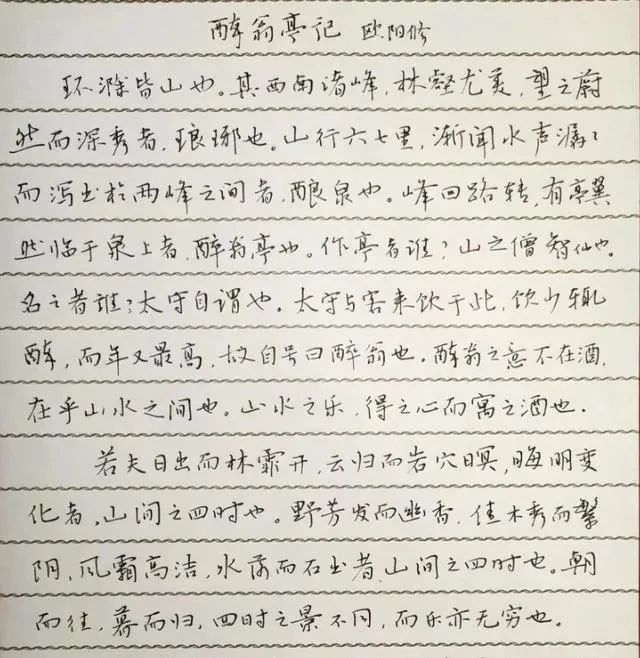 醉翁亭记 欧阳修
环滁皆山也。其西南诸峰,林壑尤美,望之蔚
然而深秀者,琅琊也。山行六七里,渐闻水声潺々
而泻出于两峰之间者,酿泉也。峰回路转,有亭翼
然临于泉上者,醉翁亭也。作亭者谁?山之僧智仙也。
名之者谁?太守自谓也。太守与客来饮于此,饮少辄
醉,而年又最高,故自号曰醉翁也。醉翁之意不在酒,
在乎山水之间也。山水之乐,得之心而寓之酒也.
若夫日出而林霏开,云归而岩穴暝,晦明变
化者,山间之四时也。野芳发而幽香,佳木秀而繁
阴,风霜高洁,水落而石出者,山间之四时也。朝
而往,暮而归,四时之景不同,而乐亦无穷也。